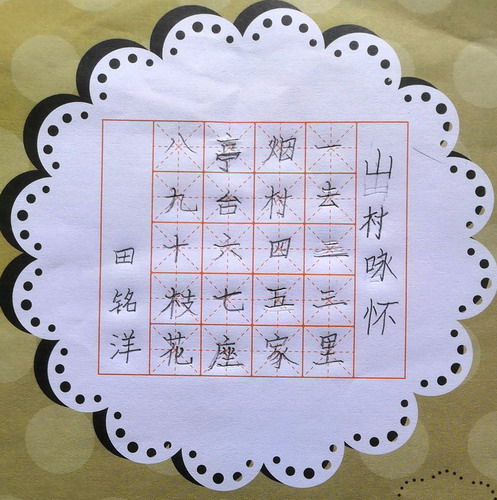 山村咏怀
一去二三里
烟村四五家
亭台六七座
八九十枝花
田铭洋